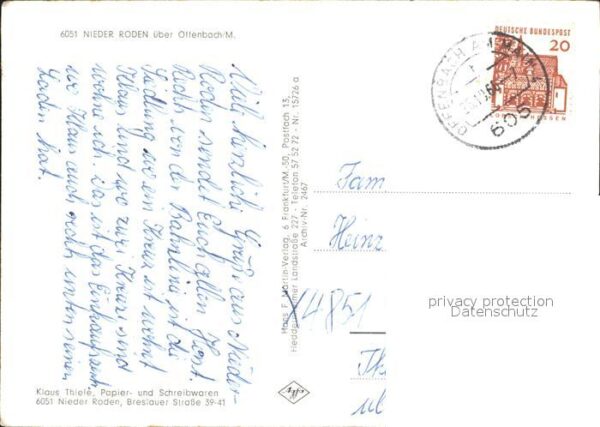 6051 NIEDER RODEN über Offenbach/M.
Viele herzliche Grüße aus Nieder-
Roden sendet Euch allen Horst.
Rechts von der Bahnlinie ist die
Siedlung wo ein Kreuz ist wohnt
Klaus und wo zwei Kreuze sind
wohne ich. Das ist das Einkaufszentr.
wo Klaus auch rechts unten seinen
Laden hat.
Klaus Thiele, Papier- und Schreibwaren
6051 Nieder Roden, Breslauer Straße 39-41
Hans F. Martin-Verlag, 6 Frankfurt/M.-50, Postfach 13,
Heddernheimer Landstraße 227 - Telefon 57 52 72 - Nr. 15/26 a
Archiv-Nr. 2467
DEUTSCHE BUNDESPOST
20
LORSCH/HESSEN
OFFENBACH AM MAIN 1
605
Fam
Heinz
X4851
privacy protection
Datenschutz